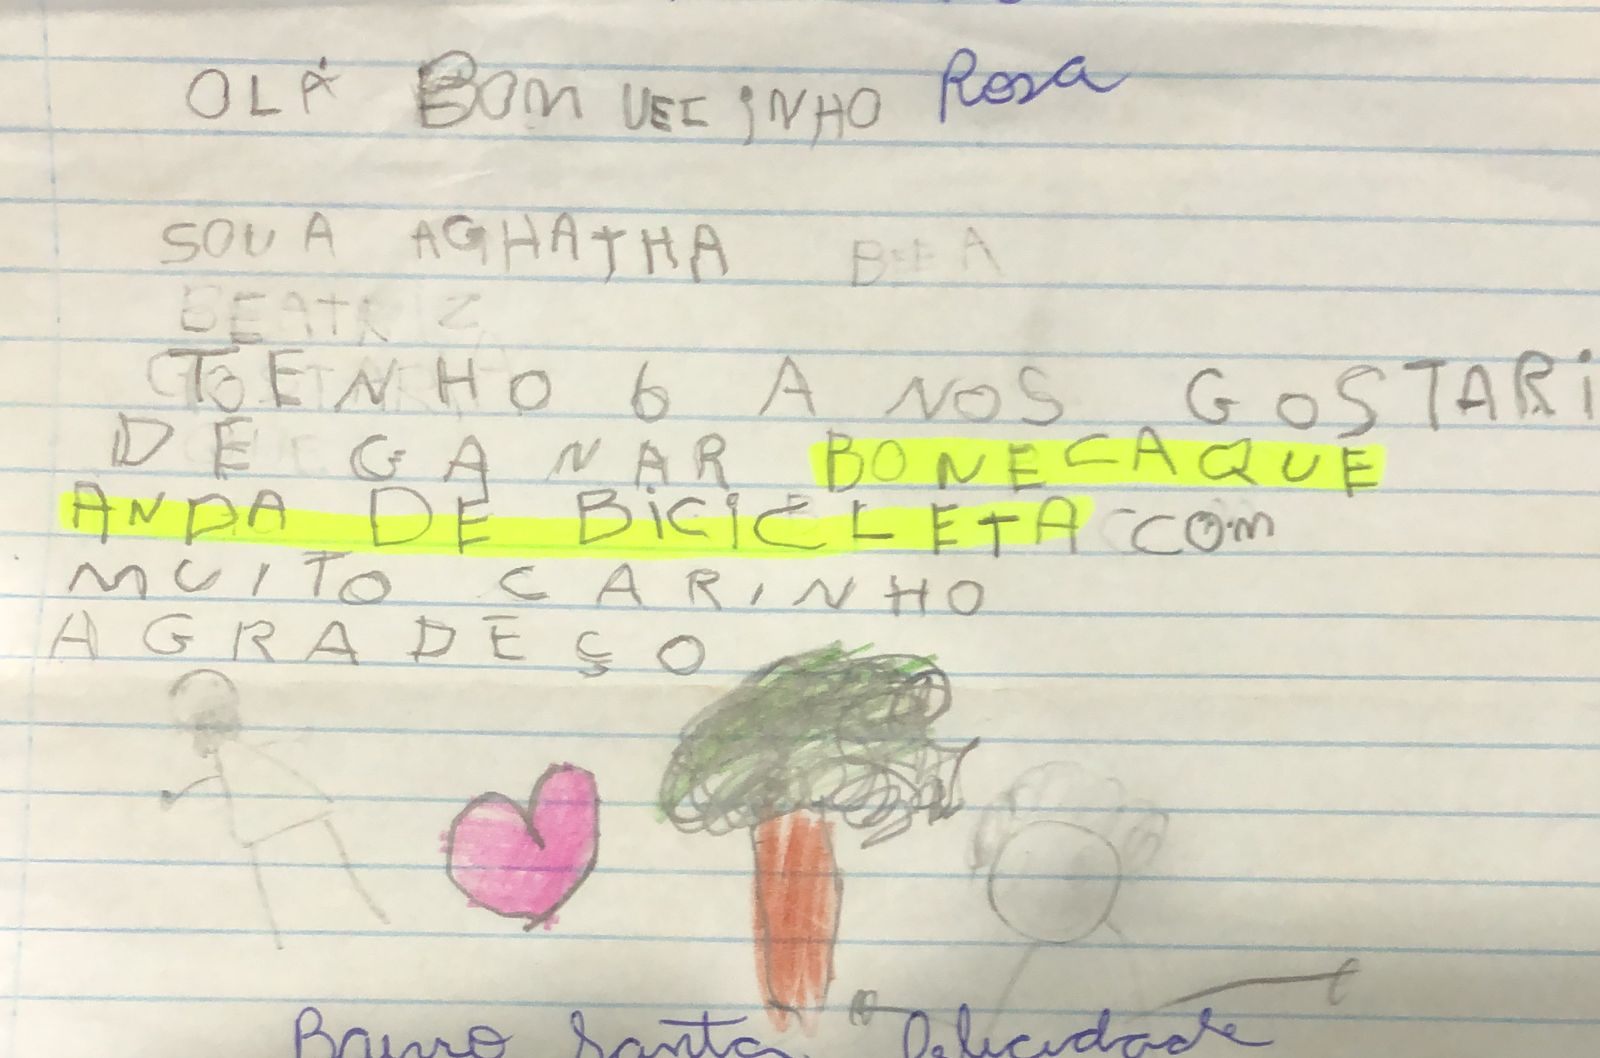 OLÁ BOM VECINHO Rosa
SOU A AGHATHA
BEATRIZ
TENHO 6 ANOS GOSTARI
DE GANAR BONECA QUE
ANDA DE BICICLETA COM
MUITO CARINHO
AGRADEÇO
Bairro Santa Felicidade